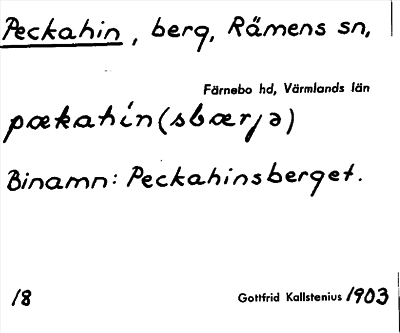 Peckahin, berg, Rämens sn,
Färnebo hd, Värmlands län
pækahín (sbærjə)
Binamn: Peckahinsberget.
18 Gottfrid Kallstenius 1903